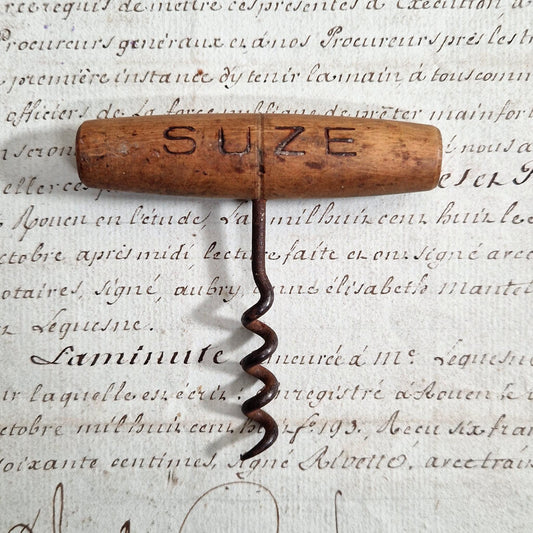 requis de mettre ces présentes a Execution a
Procureurs généraux et a nos Procureurs près les tr
première instance d'y tenir la main, à tous comm
officiers de La force publique de prêter mainfort
en seron
SUZE
elle ce
Rouen en l'étude, La mil huit cent huit le
ctobre après midi lecture faite et ont signé avec
otaires, signé, aubry, anne elisabeth Mantel
Lequesne.
Laminute demeurée à Me. Lequesne
ur laquelle est écrit: Enregistré à Rouen le
ctobre mil huit cent huit fo. 193. Recu six fran
oixante centimes, signé Rivette, avec trans